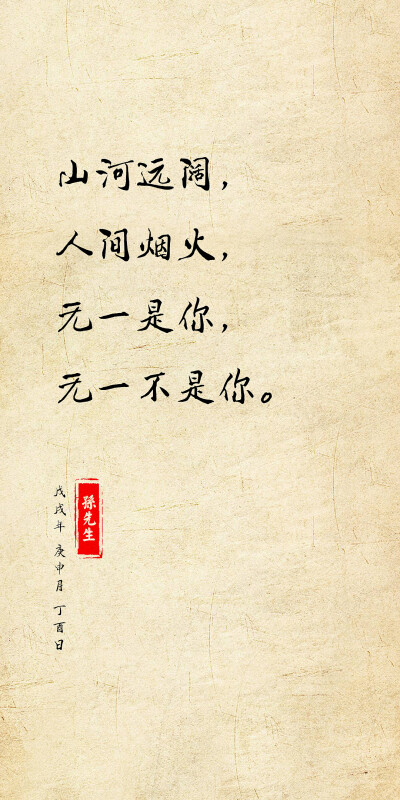 山河远阔，
人间烟火，
无一是你，
无一不是你。
孫先生
戊戌年 庚申月 丁酉日